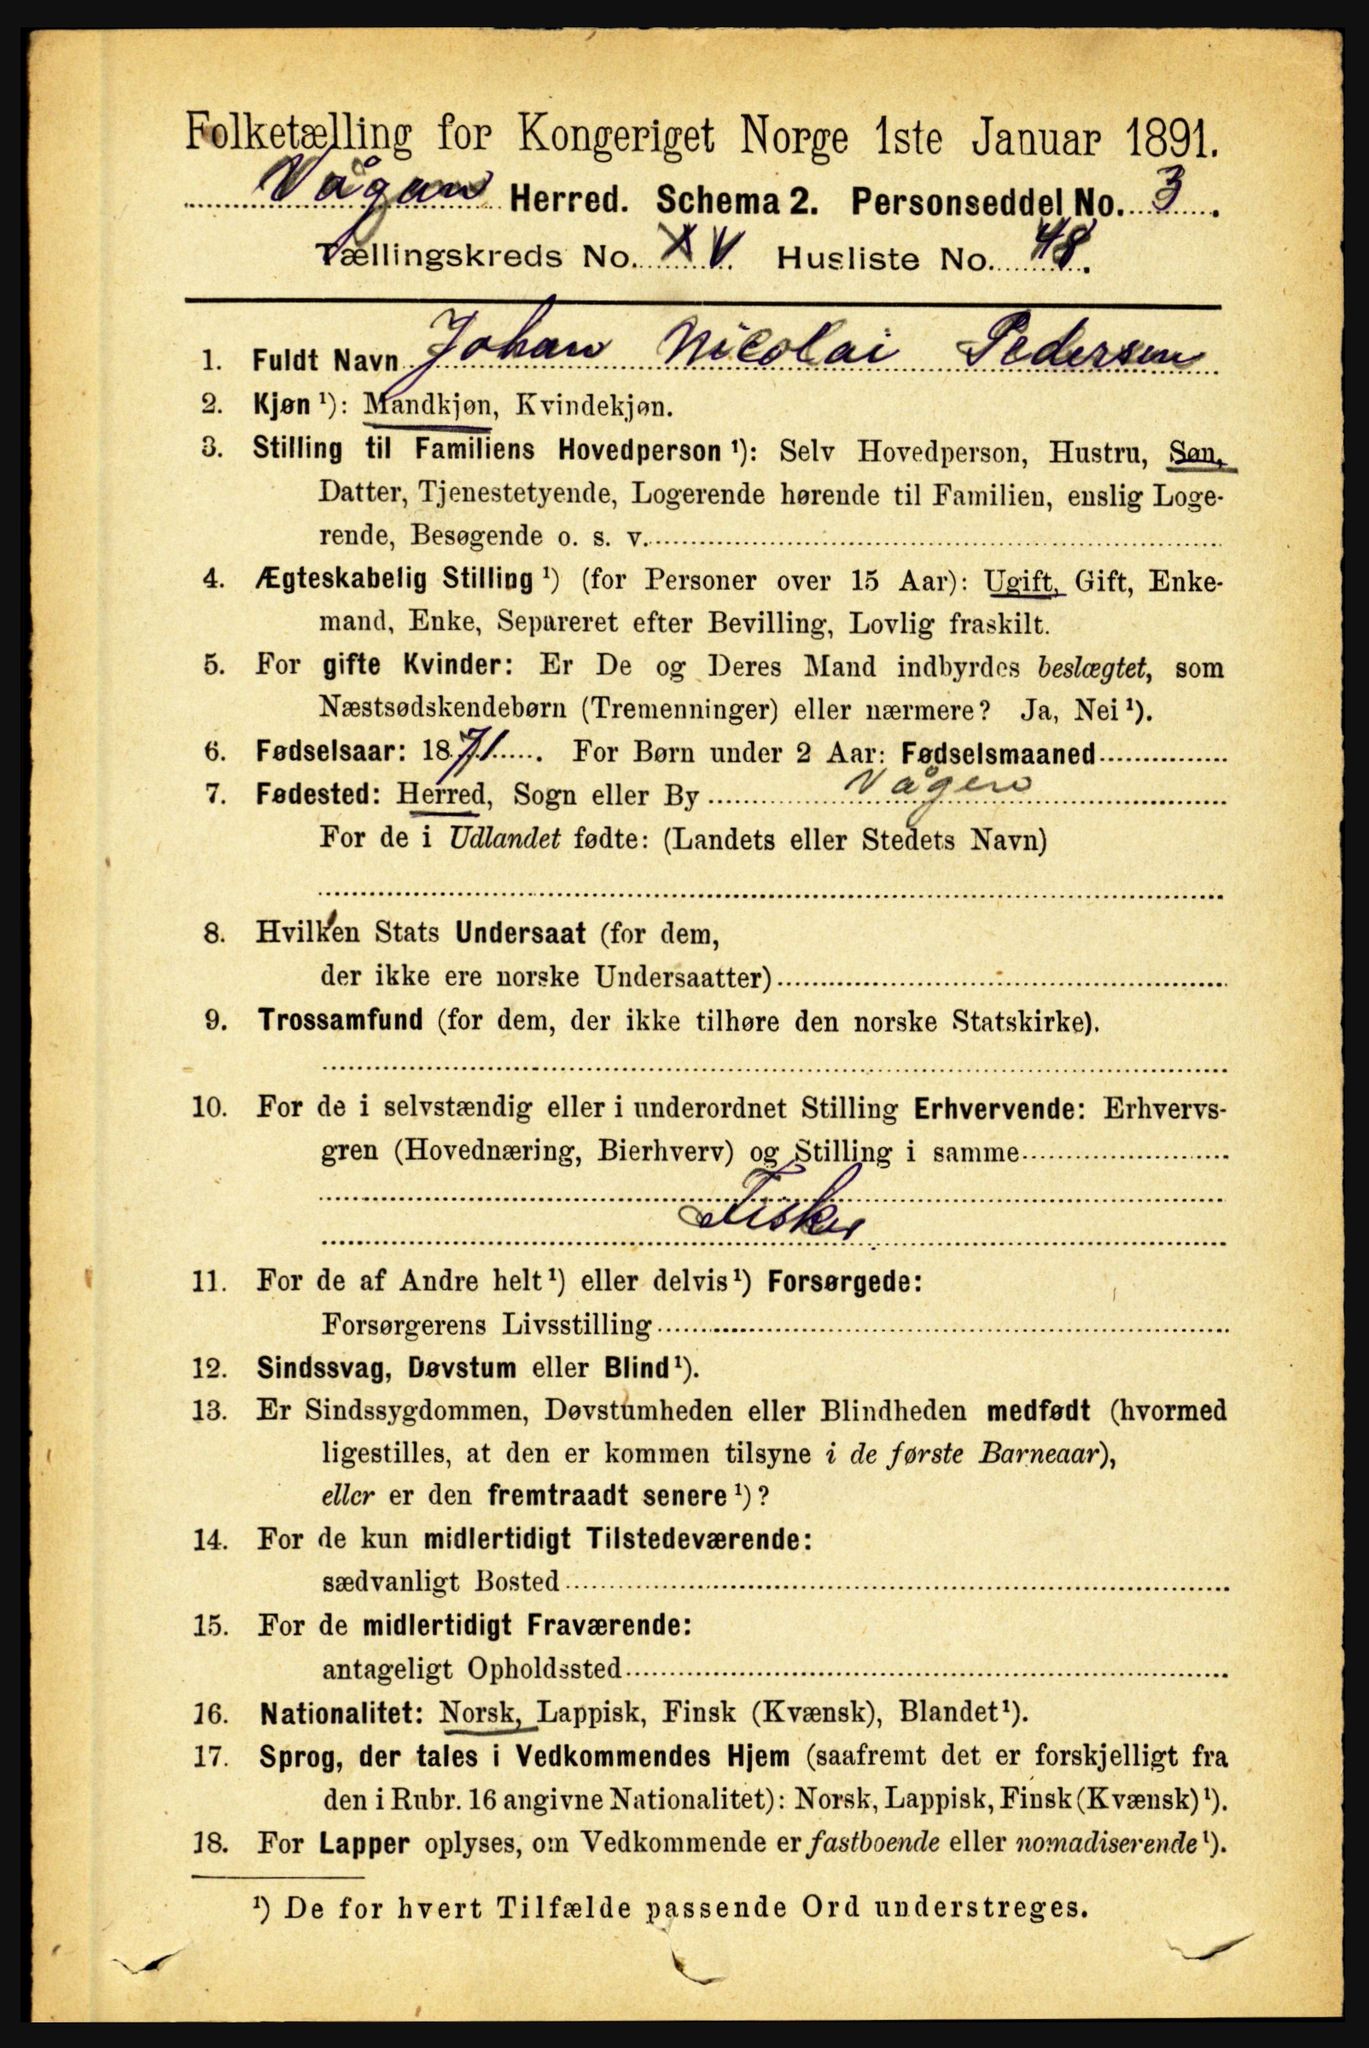 Folketælling for Kongeriget Norge 1ste Januar 1891.
Vågan Herred. Schema 2. Personseddel No. 3.
Tællingskreds No. XV. Husliste No. 48.
1. Fuldt Navn Johan Nicolai Pedersen
2. Kjøn ¹): Mandkjøn, Kvindekjøn.
3. Stilling til Familiens Hovedperson ¹): Selv Hovedperson, Hustru, Søn,
Datter, Tjenestetyende, Logerende hørende til Familien, enslig Loge-
rende, Besøgende o. s. v.
4. Ægteskabelig Stilling ¹) (for Personer over 15 Aar): Ugift, Gift, Enke-
mand, Enke, Separeret efter Bevilling, Lovlig fraskilt.
5. For gifte Kvinder: Er De og Deres Mand indbyrdes beslægtet, som
Næstsødskendebørn (Tremenninger) eller nærmere? Ja, Nei ¹).
6. Fødselsaar: 1871. For Børn under 2 Aar: Fødselsmaaned
7. Fødested: Herred, Sogn eller By Vågen
For de i Udlandet fødte: (Landets eller Stedets Navn)
8. Hvilken Stats Undersaat (for dem,
der ikke ere norske Undersaatter)
9. Trossamfund (for dem, der ikke tilhøre den norske Statskirke).
10. For de i selvstændig eller i underordnet Stilling Erhvervende: Erhvervs-
gren (Hovednæring, Bierhverv) og Stilling i samme
Fisker
11. For de af Andre helt ¹) eller delvis ¹) Forsørgede:
Forsørgerens Livsstilling
12. Sindssvag, Døvstum eller Blind ¹).
13. Er Sindssygdommen, Døvstumheden eller Blindheden medfødt (hvormed
ligestilles, at den er kommen tilsyne i de første Barneaar),
eller er den fremtraadt senere ¹)?
14. For de kun midlertidigt Tilstedeværende:
sædvanligt Bosted
15. For de midlertidigt Fraværende:
antageligt Opholdssted
16. Nationalitet: Norsk, Lappisk, Finsk (Kvænsk), Blandet ¹).
17. Sprog, der tales i Vedkommendes Hjem (saafremt det er forskjelligt fra
den i Rubr. 16 angivne Nationalitet): Norsk, Lappisk, Finsk (Kvænsk) ¹).
18. For Lapper oplyses, om Vedkommende er fastboende eller nomadiserende ¹).
¹) De for hvert Tilfælde passende Ord understreges.